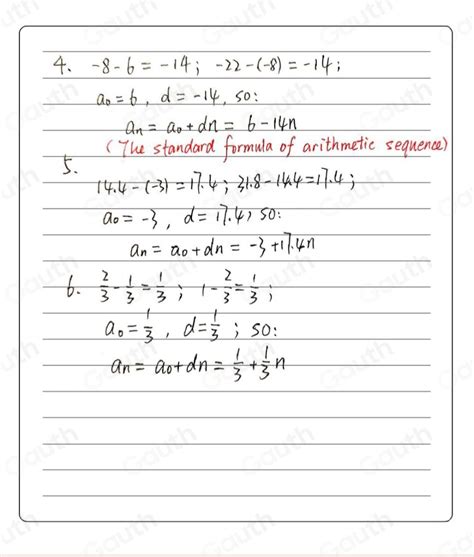 4. -8-6=-14; -22-(-8)=-14;
a₀=6, d=-14, so:
aₙ=a₀+dn=6-14n
(The standard formula of arithmetic sequence)
5.
14.4-(-3)=17.4; 31.8-14.4=17.4;
a₀=-3, d=17.4, so:
aₙ=a₀+dn=-3+17.4n
6. 2/3-1/3=1/3; 1-2/3=1/3;
a₀=1/3, d=1/3; so:
aₙ=a₀+dn=1/3+1/3n